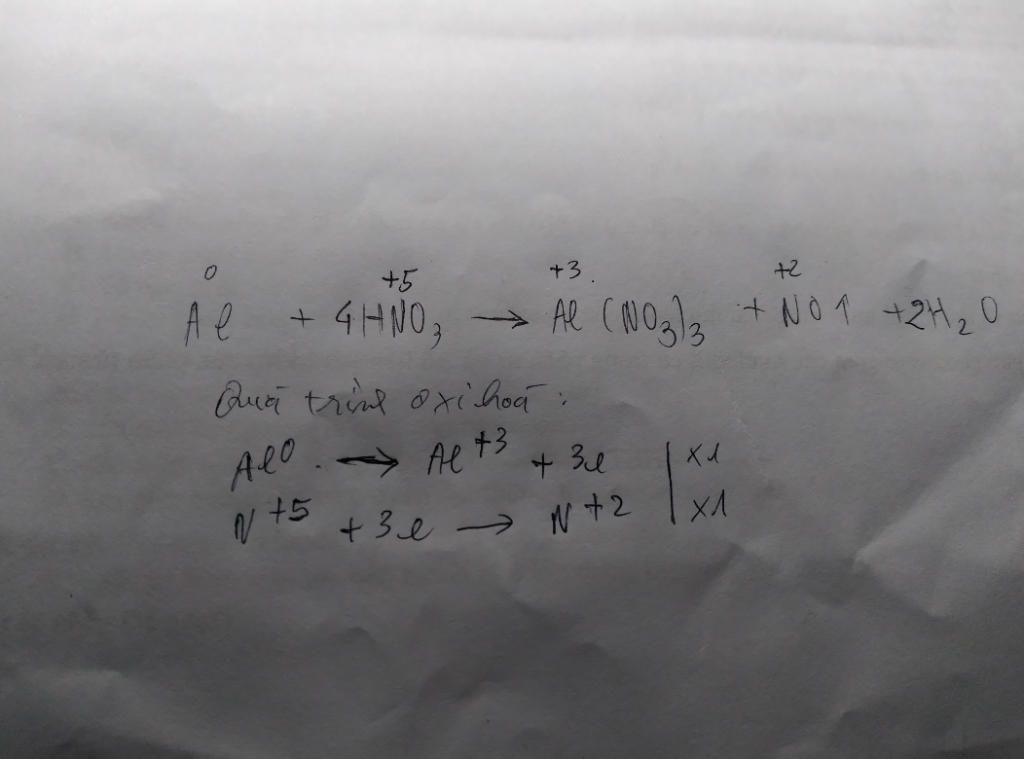 0 +5 +3 . +2
Al + 4HNO3 → Al(NO3)3 + NO↑ +2H2O
Quá trình oxi hoá :
Al0 . → Al+3 + 3e | x1
N+5 + 3e → N+2 | x1